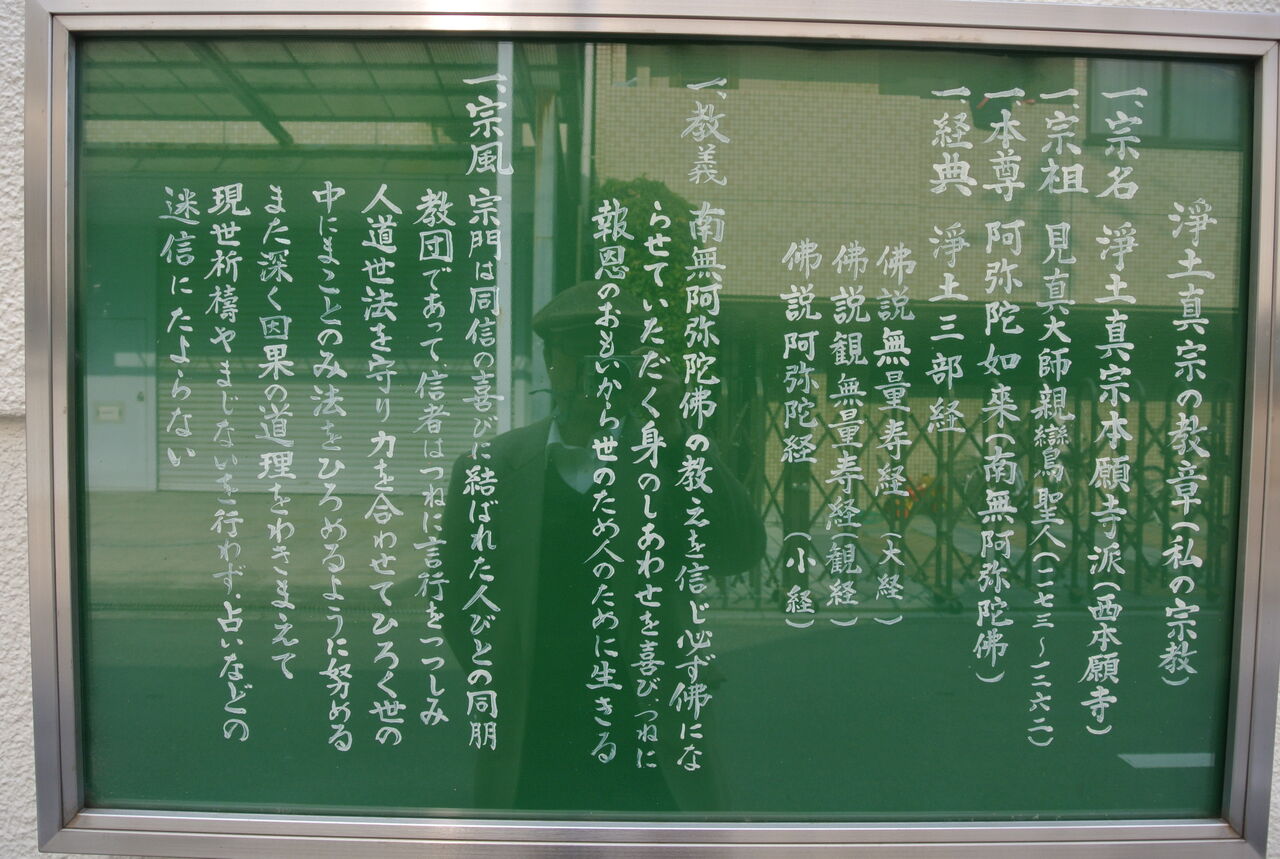 淨土真宗の教章(私の宗教)
一、宗名 淨土真宗本願寺派(西本願寺)
一、宗祖 見真大師親鸞聖人(一一七三～一二六二)
一、本尊 阿弥陀如来(南無阿弥陀佛)
一、経典 淨土三部経
佛説無量寿経(大経)
佛説観無量寿経(観経)
佛説阿弥陀経(小経)
一、教義 南無阿弥陀佛の教えを信じ必ず佛にな
らせていただく身のしあわせを喜び、つねに
報恩のおもいから世のため人のために生きる
一、宗風 宗門は同信の喜びに結ばれた人びとの同朋
教団であって信者はつねに言行をつつしみ
人道世法を守り力を合わせてひろく世の
中にまことのみ法をひろめるように努める
また深く因果の道理をわきまえて
現世祈禱やまじないを行わず、占いなどの
迷信にたよらない